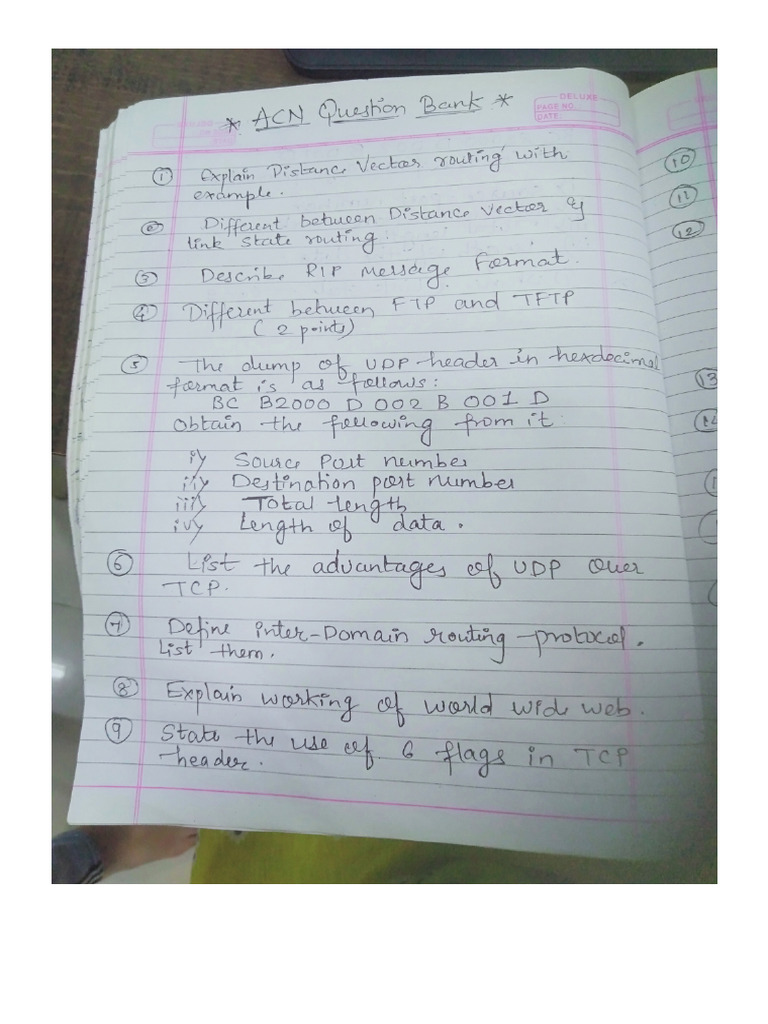 * ACN Question Bank *
DELUXE
PAGE NO.
DATE:
① Explain Distance Vector routing with
example.
② Different between Distance Vector &
link state routing.
③ Describe RIP Message Format.
④ Different between FTP and TFTP
( 2 points)
⑤ The dump of UDP header in hexdecimal
format is as follows:
BC B2000 D 002 B 001 D
Obtain the following from it:
i) Source Port number
ii) Destination port number
iii) Total length
iv) Length of data.
⑥ List the advantages of UDP over
TCP.
⑦ Define inter-Domain routing protocol.
List them.
⑧ Explain working of world wide web.
⑨ State the use of 6 flags in TCP
header.
⑩
⑪
⑫
⑬